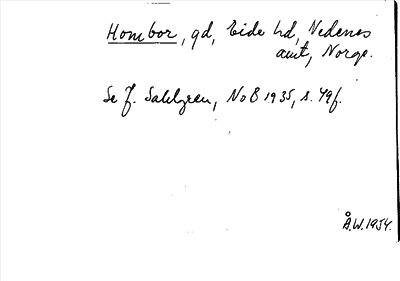 Hombor, gd, Eide hd, Nedenes
amt, Norge.
Se J. Sahlgren, NoB 1935, s. 49f.
Å.W. 1954.